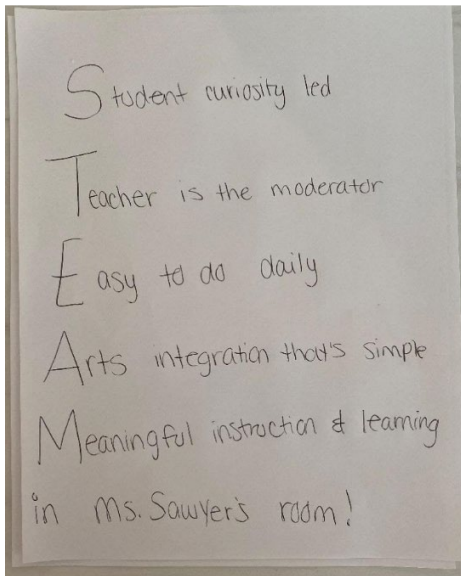 Student curiosity led
Teacher is the moderator
Easy to do daily
Arts integration that's simple
Meaningful instruction & learning
in Ms. Sawyer's room!